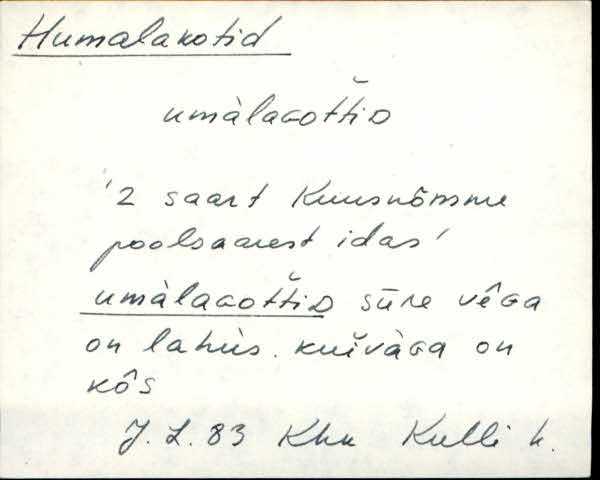 Humalakotid
umàlaɢoťťiᴅ
'2 saart Kuusnõmme
poolsaarest idas'
umàlaɢoťťiᴅ sūre vêɢa
on lahùs. kuìvàɢa on
kôs
J. L. 83 Khk Kulli k.